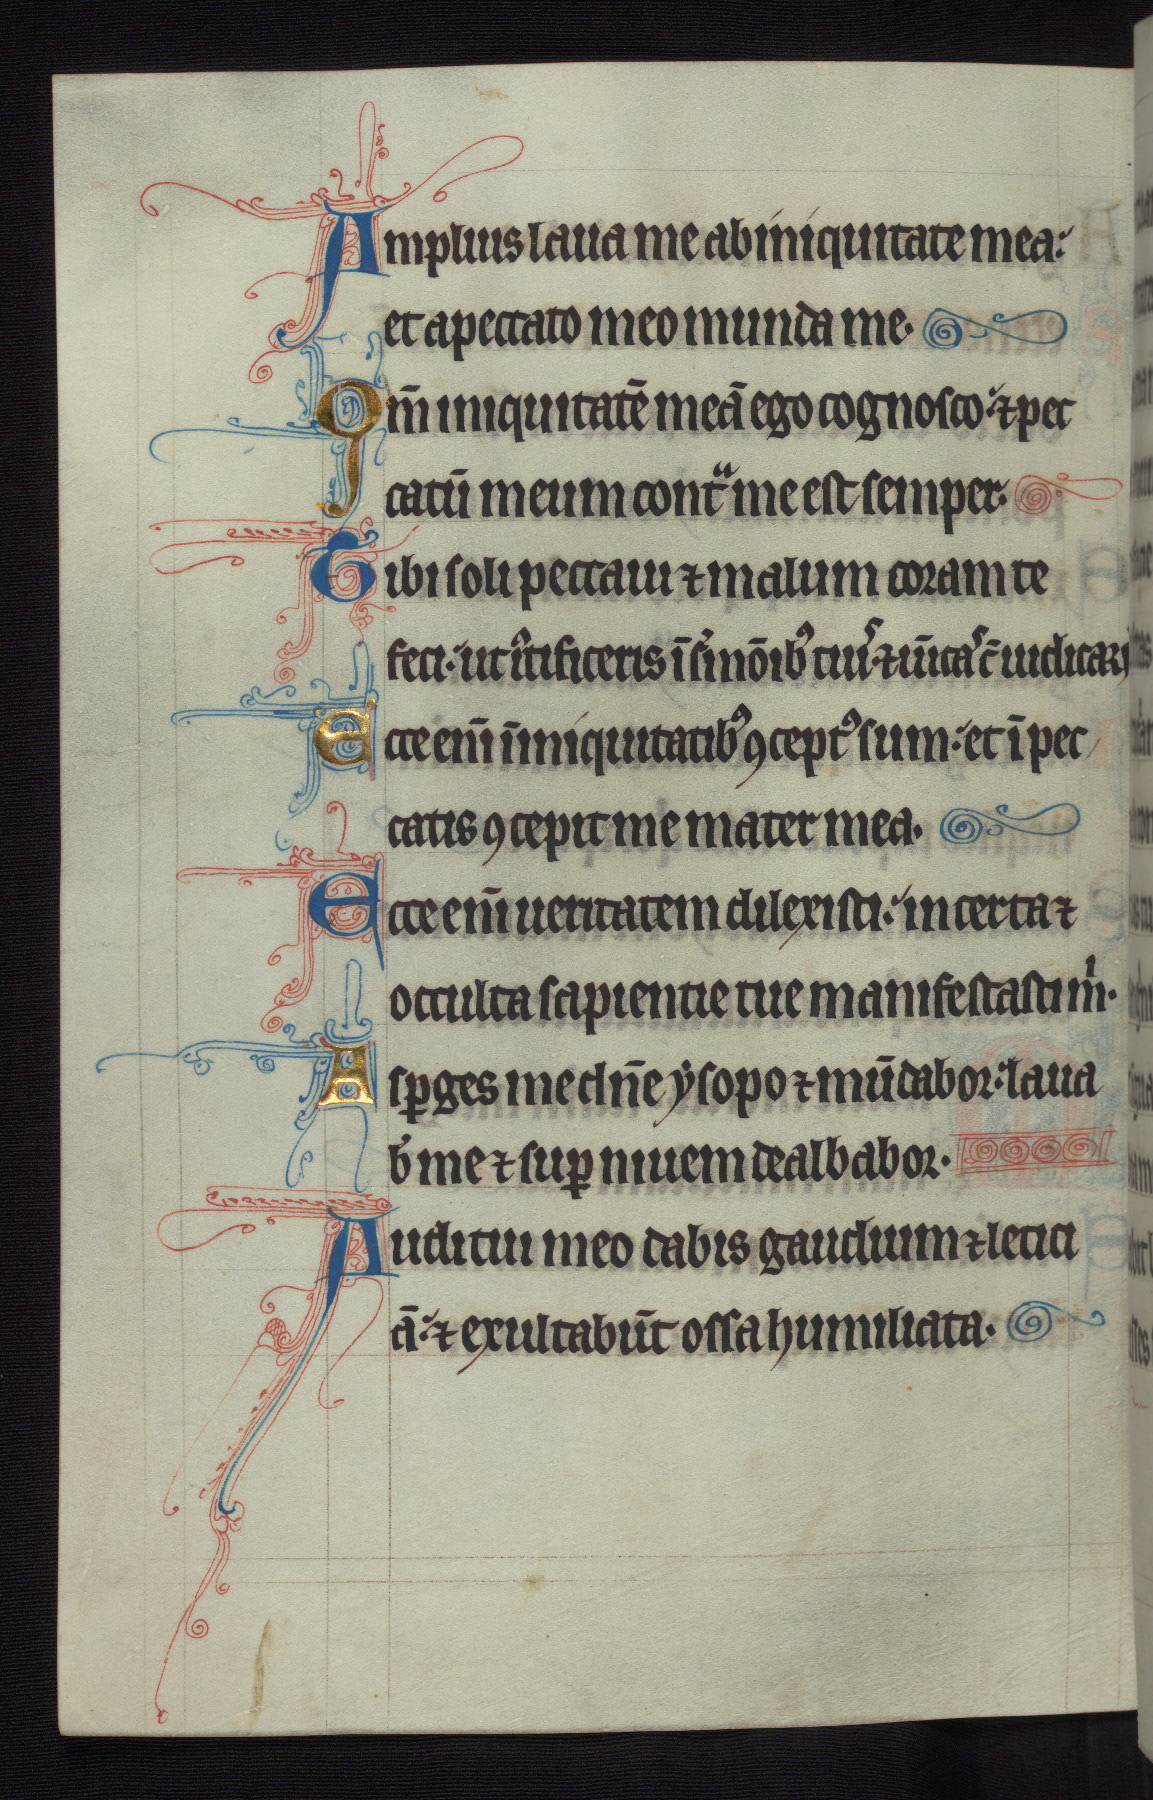 Amplius laua me ab iniquitate mea:
et a peccato meo munda me.
Qm̄ iniquitatē meā ego cognosco: ⁊ pec
catū meum contᵃ me est semper.
Tibi soli peccaui ⁊ malum coram te
feci: ut iꝰtificeris ī ẜmōibꝰ tuis ⁊ uīcas c̄ iudicaris
Ecce em̄ ī iniquitatibꝰ ꝯceptꝰ sum: et ī pec
catis ꝯcepit me mater mea.
Ecce em̄ ueritatem dilexisti: incerta ⁊
occulta sapientie tue manifestasti m̄.
Asꝑges me dn̄e ysopo ⁊ mūdabor: laua
b̄ me ⁊ suꝑ niuem dealbabor.
Auditui meo dabis gaudium ⁊ letici
ā: ⁊ exultabūt ossa humiliata.